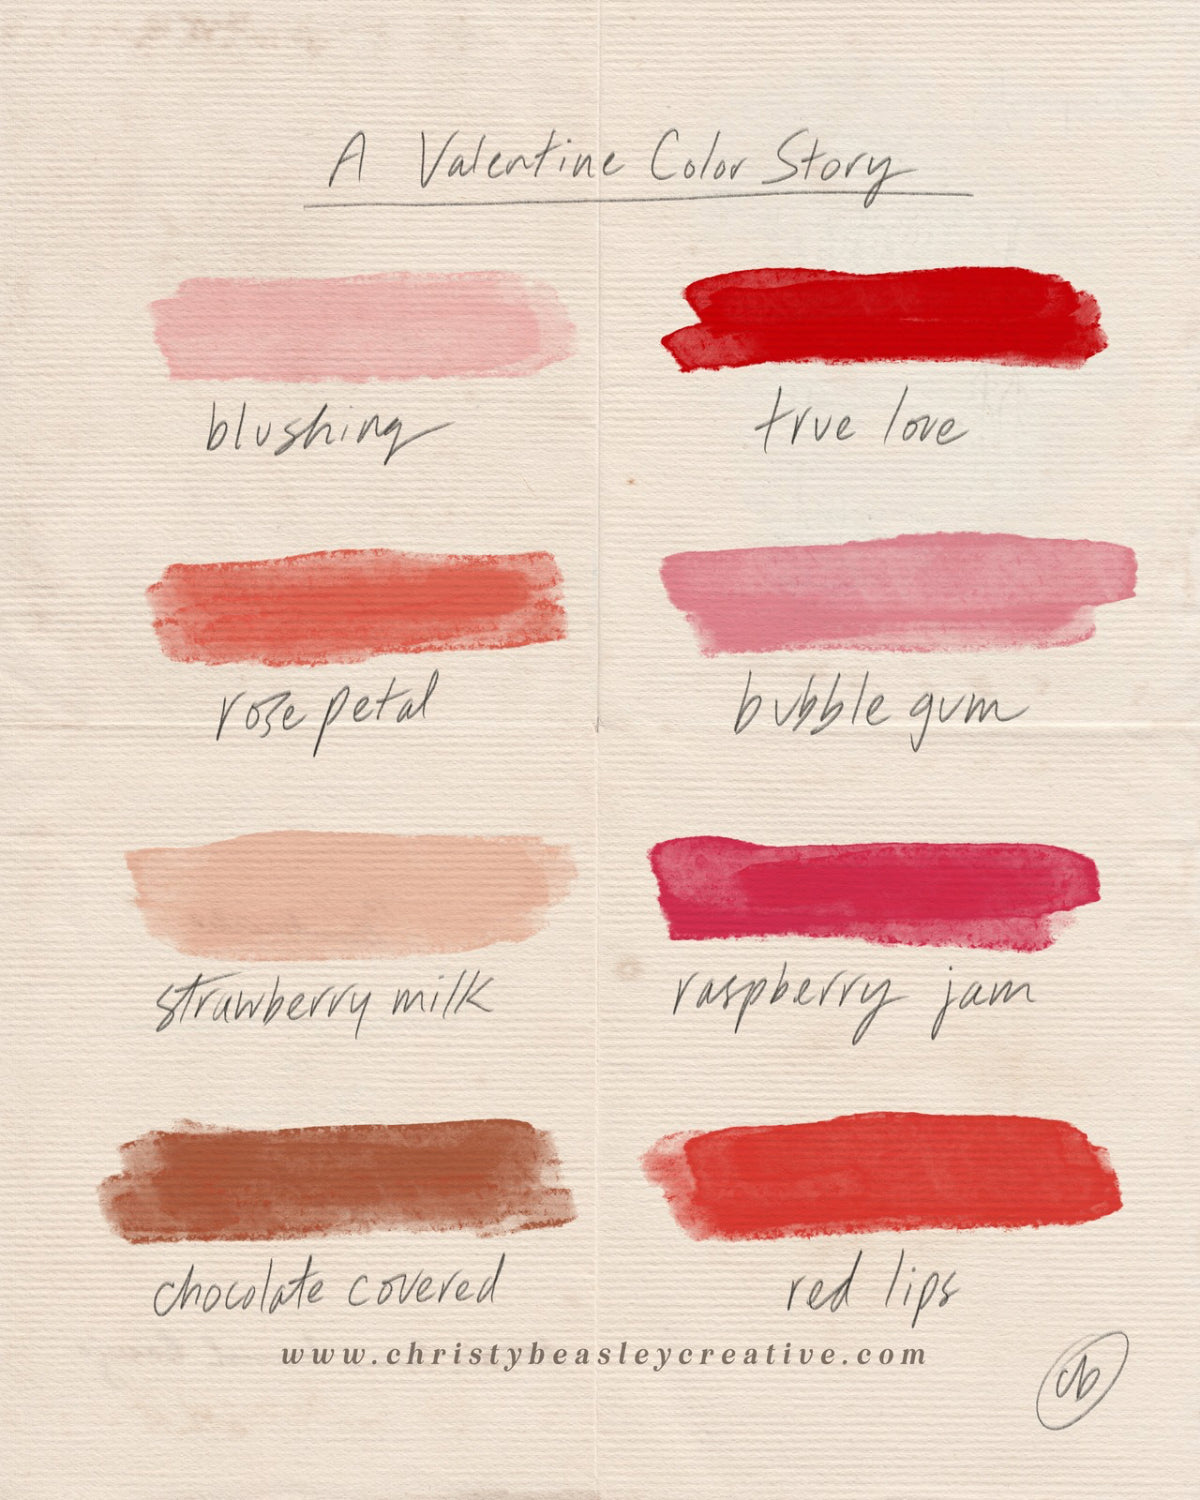 A Valentine Color Story
blushing
true love
rose petal
bubble gum
strawberry milk
raspberry jam
chocolate covered
red lips
www.christybeasleycreative.com
cb